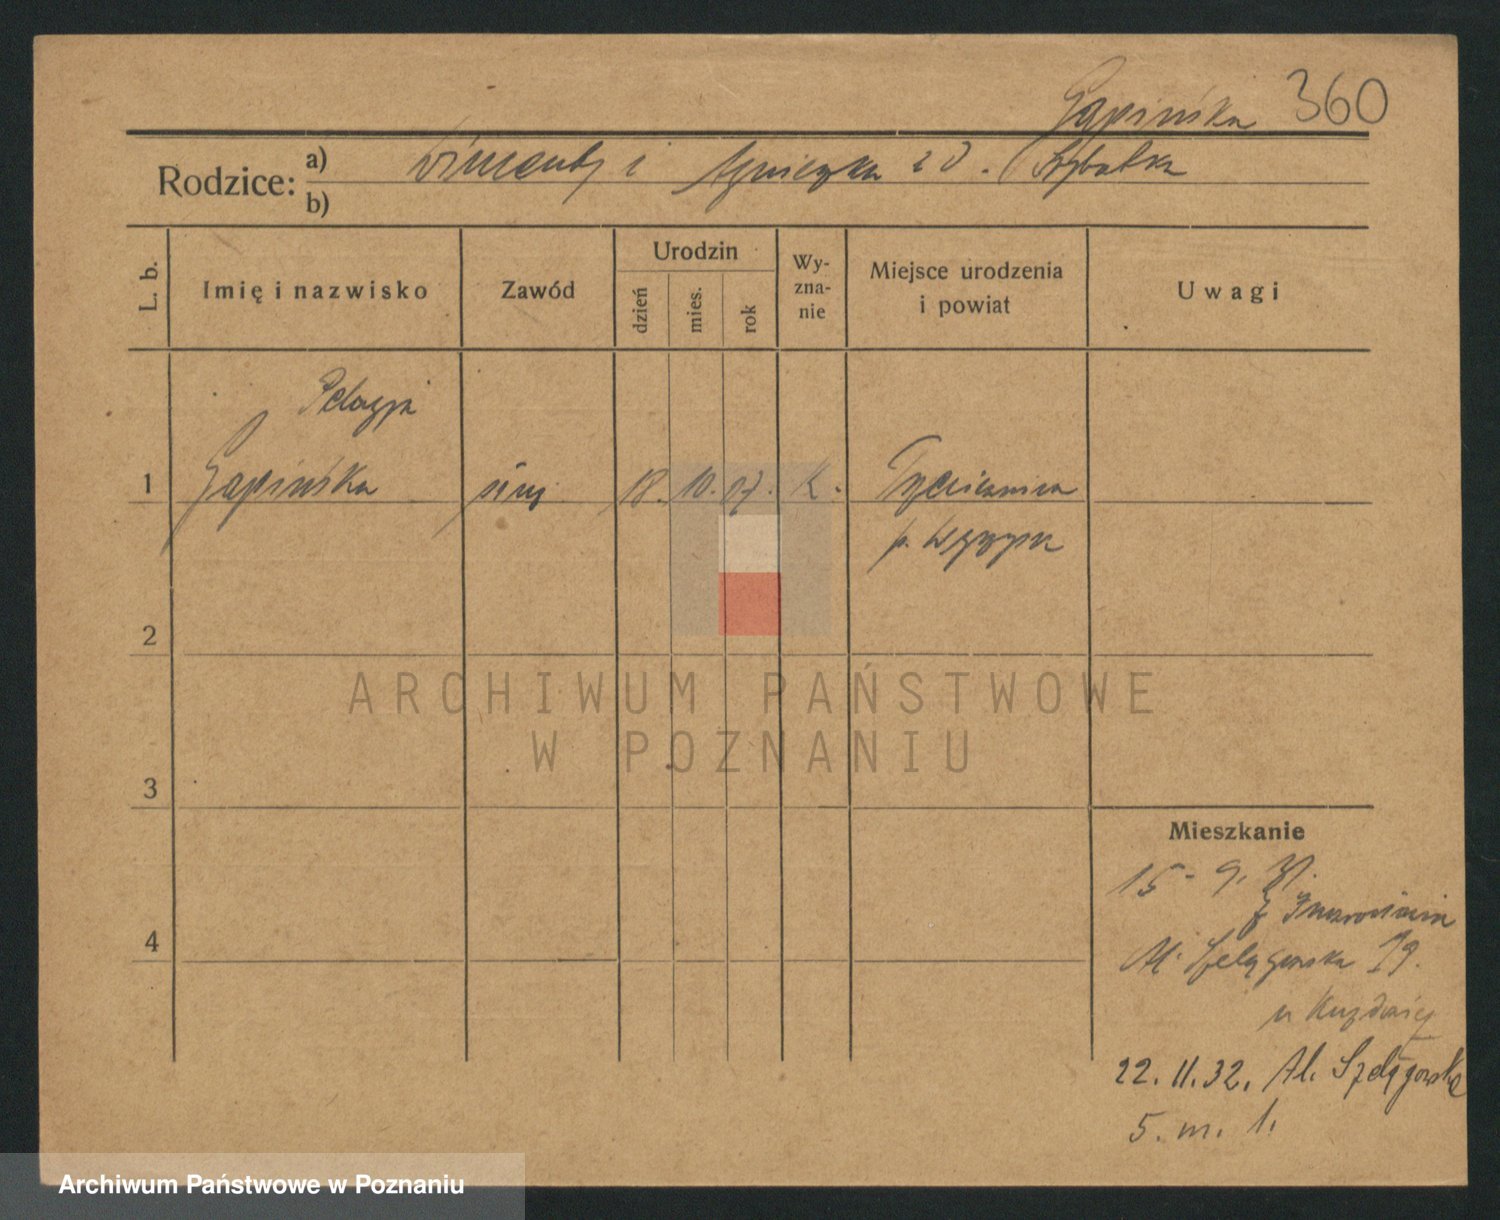 Gapińska 360
Rodzice: a) Wincenty i Agnieszka z d. Szybalska
b)
L. b.
Imię i nazwisko
Zawód
Urodzin
dzień
mies.
rok
Wy-
zna-
nie
Miejsce urodzenia
i powiat
Uwagi
Pelagja
1 Gapińska 18. 10. 07. k.
p. Września
2
ARCHIWUM PAŃSTWOWE
W POZNANIU
3
Mieszkanie
15 - 9. 31.
z Inowrocławia
4
Al. Szelągowska 19.
u
22. 11. 32. Al. Szelągowska
5. m. 1.
Archiwum Państwowe w Poznaniu